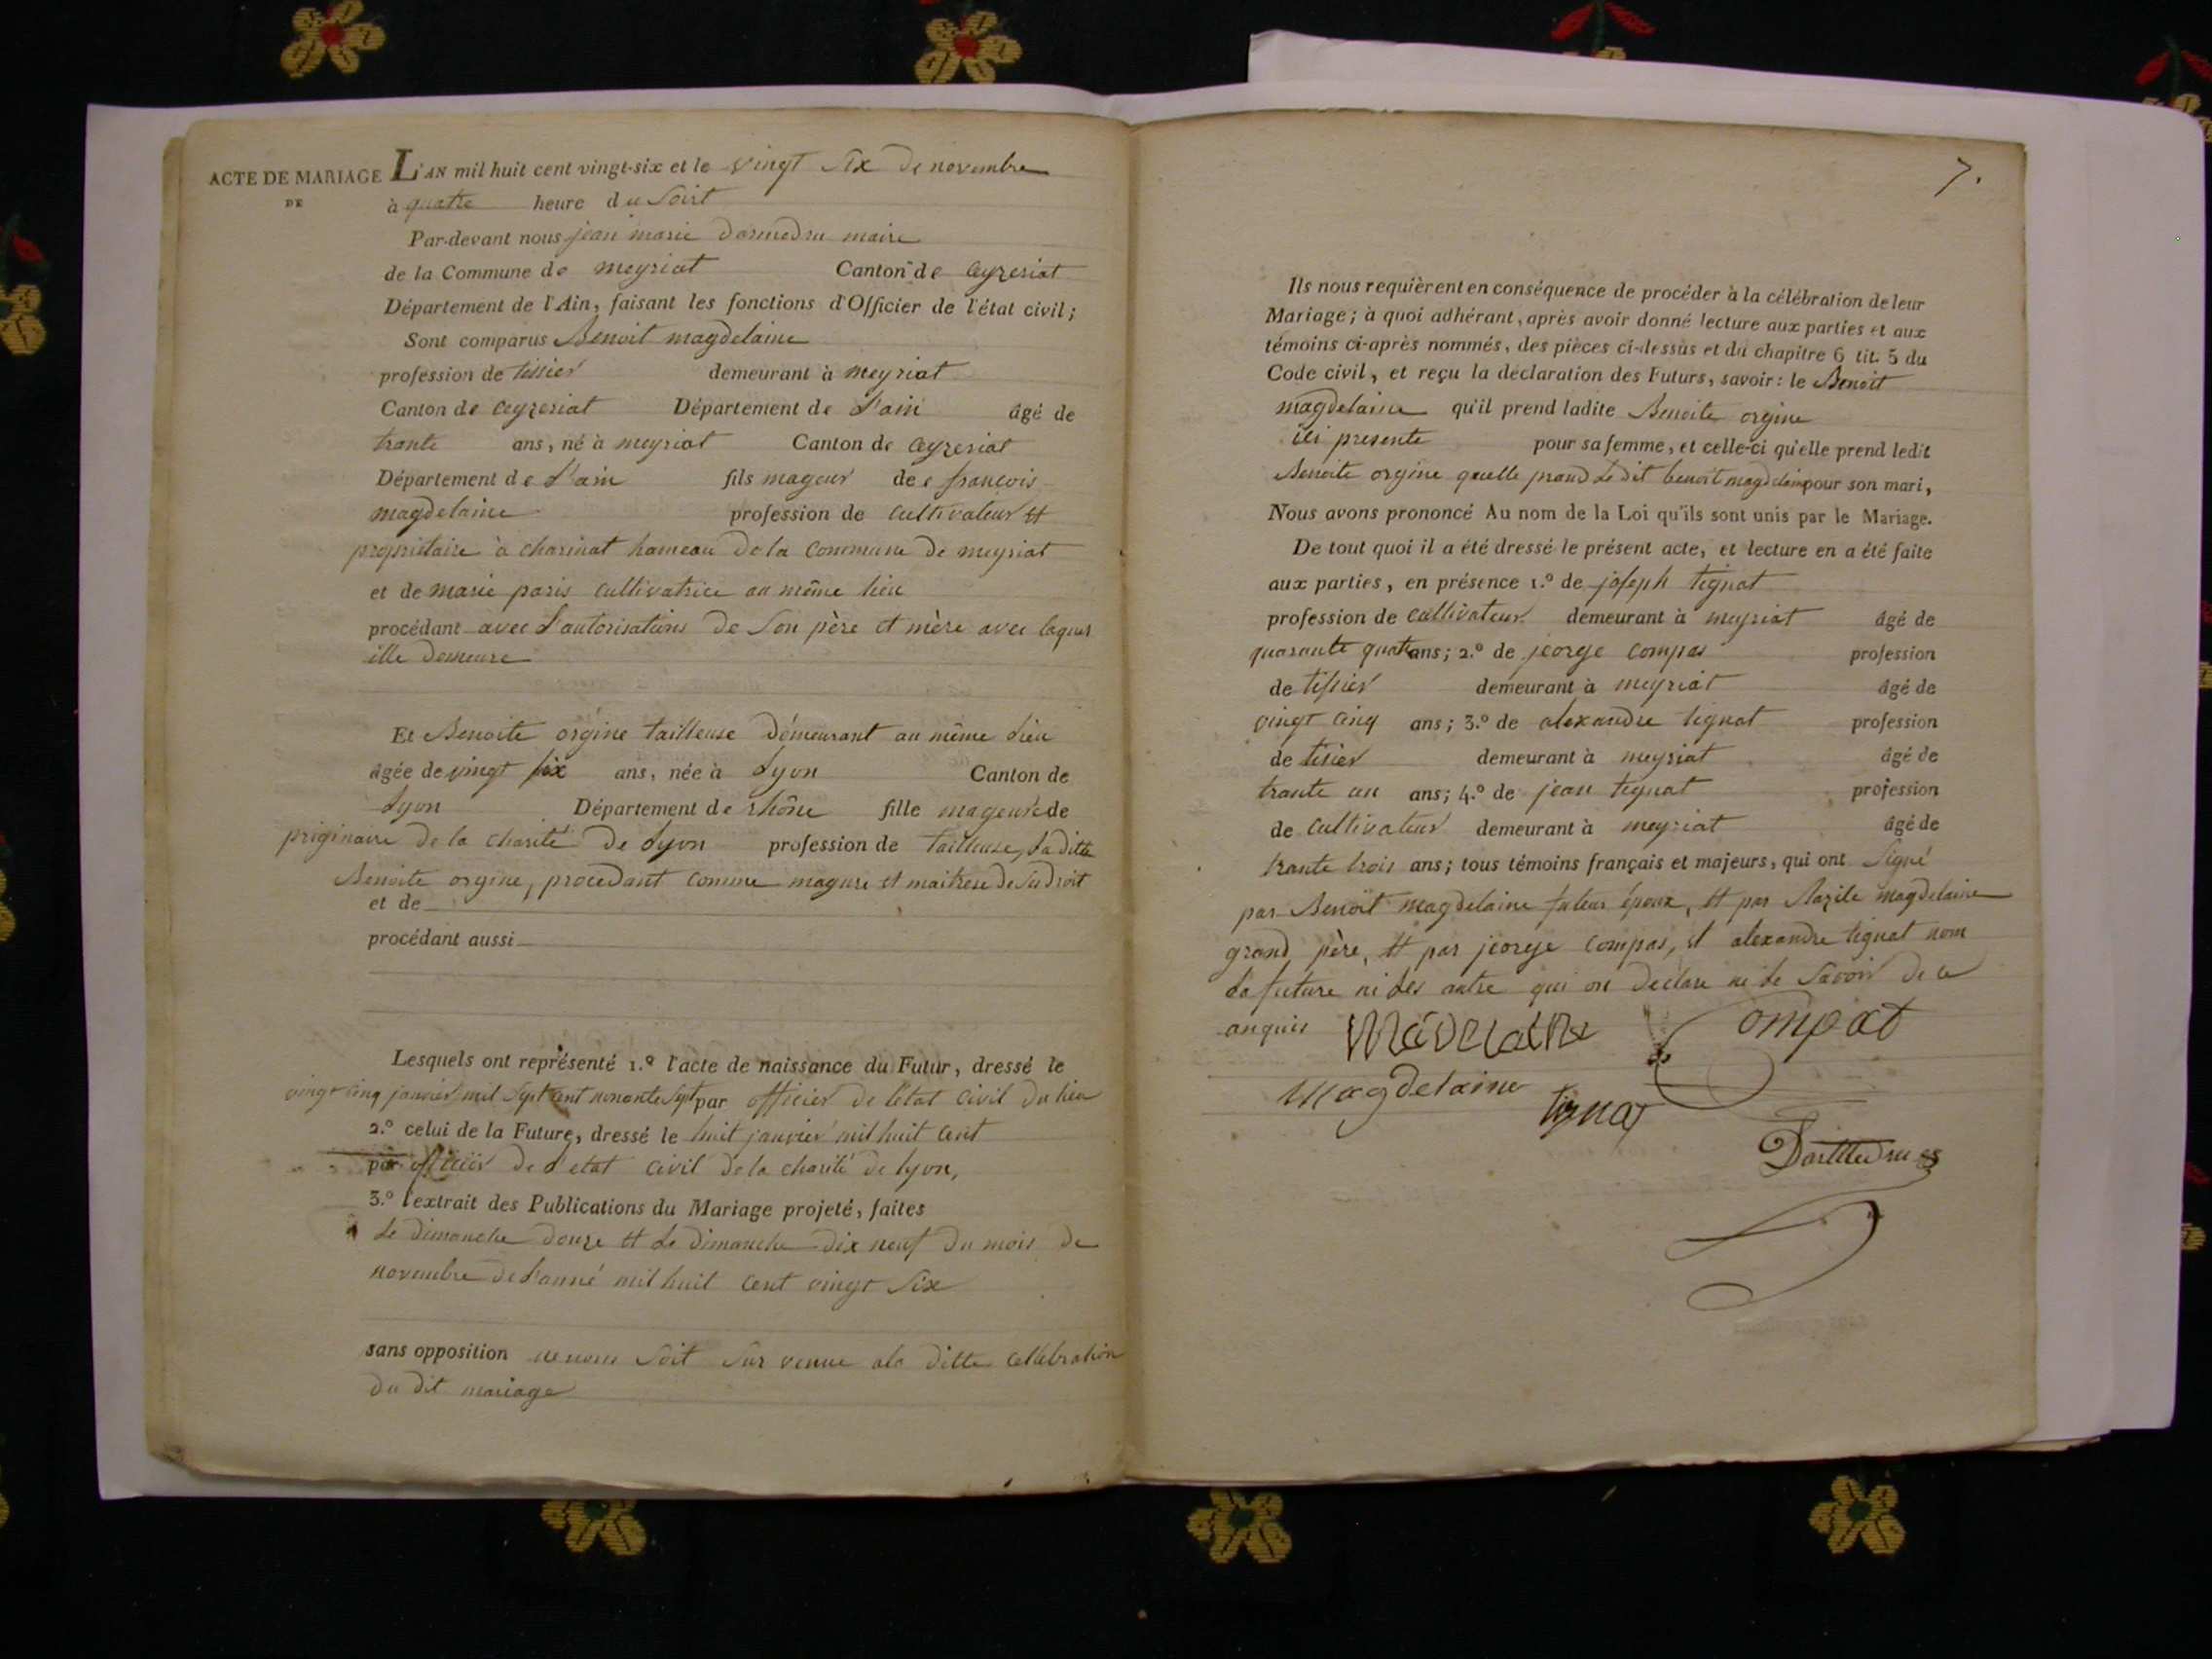 ACTE DE MARIAGE
DE
L'AN mil huit cent vingt-six et le vingt six de novembre
à quatre heure du soirt
Par-devant nous jean marie darmedru maire
de la Commune de meyriat Canton de Ceyzeriat
Département de l'Ain, faisant les fonctions d'Officier de l'état civil;
Sont comparus Benoit magdelaine
profession de tissier demeurant à meyriat
Canton de Ceyzeriat Département de L'ain âgé de
trante ans, né à meyriat Canton de Ceyzeriat
Département de L'ain fils mageur de françois
magdelaine profession de Cultivateur et
propriétaire à charinat hameau de la Commune de meyriat
et de marie paris cultivatrice au même lieu
procédant avec L'autorisations de son père et mère avec laquel
ille demeure
Et Benoite orgine tailleuse démeurant au même Lieu
âgée de vingt six ans, née à Lyon Canton de
Lyon Département de rhône fille mageure de
de la charité de Lyon profession de tailleuse, La ditte
Benoite orgine, procedant comme magure et maitrese de Su droit
et de
procédant aussi
Lesquels ont représenté 1.º l'acte de naissance du Futur, dressé le
vingt cinq janvier mil sept cent nonante sept par officier de l'état civil du lieu
2.º celui de la Future, dressé le huit janvier mil huit cent
par officier de L'etat civil de la charité de lyon,
3.º l'extrait des Publications du Mariage projeté, faites
Le dimanche douze et Le dimanche dix neuf du mois de
novembre de L'anné mil huit cent vingt six
sans opposition ne nous soit sur venue ala ditte cellebration
du dit mariage
7.
Ils nous requièrent en conséquence de procéder à la célébration de leur
Mariage; à quoi adhérant, après avoir donné lecture aux parties et aux
témoins ci-après nommés, des pièces ci-dessus et du chapitre 6 tit. 5 du
Code civil, et reçu la déclaration des Futurs, savoir: le Benoit
magdelaine qu'il prend ladite Benoite orgine
ici presente pour sa femme, et celle-ci qu'elle prend ledit
Benoite orgine quelle prand Le dit benoit magdelaine pour son mari,
Nous avons prononcé Au nom de la Loi qu'ils sont unis par le Mariage.
De tout quoi il a été dressé le présent acte, et lecture en a été faite
aux parties, en présence 1.º de joseph tignat
profession de cultivateur demeurant à meyriat âgé de
quarante quatre ans; 2.º de jeorge compas profession
de tissier demeurant à meyriat âgé de
vingt cinq ans; 3.º de alexandre tignat profession
de tisier demeurant à meyriat âgé de
trante un ans; 4.º de jean tignat profession
de cultivateur demeurant à meyriat âgé de
trante trois ans; tous témoins français et majeurs, qui ont signé
par Benoit magdelaine futeur époux, et par magdelaine
grand père, et par jeorge compas, et alexandre tignat nom
La future ni Les autre qui on declare ne le savoir de ce
anquis Madelaine Compat
Magdelaine tignat
Darmedru